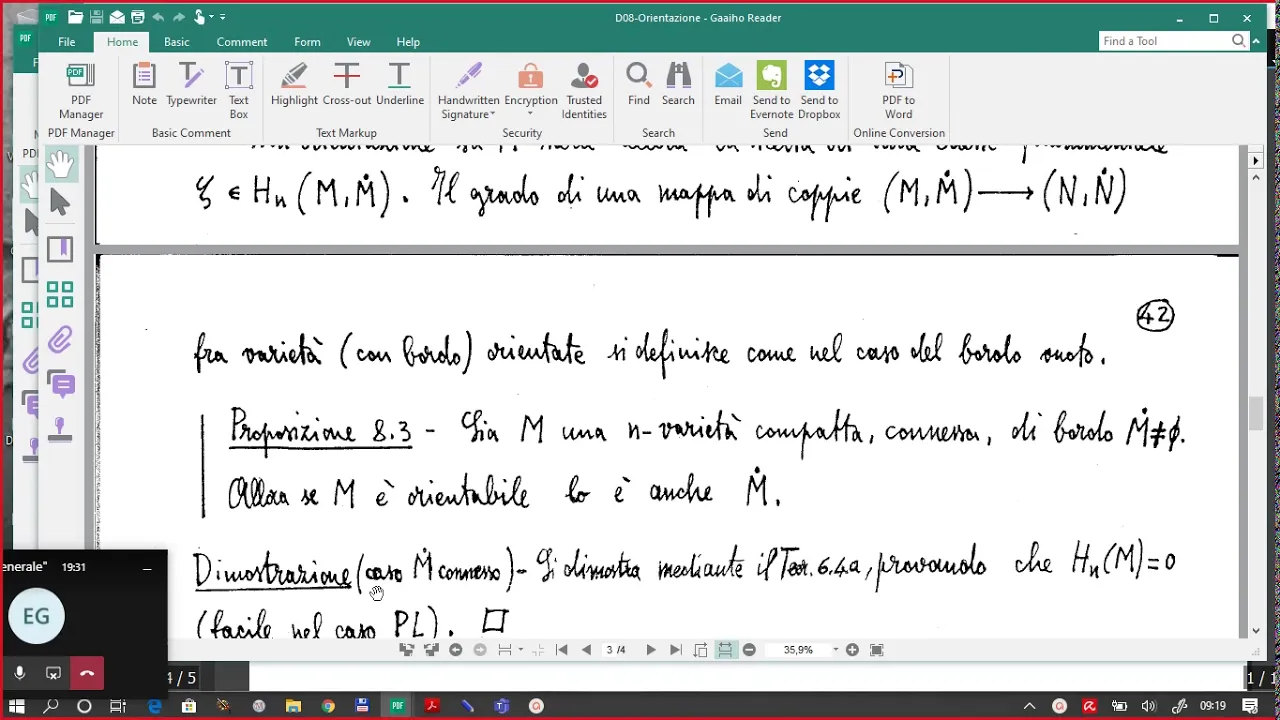 D08-Orientazione - Gaaiho Reader
File Home Basic Comment Form View Help
Find a Tool
PDF Manager Note Typewriter Text Box Highlight Cross-out Underline Handwritten Signature Encryption Trusted Identities Find Search Email Send to Evernote Send to Dropbox PDF to Word
PDF Manager Basic Comment Text Markup Security Search Send Online Conversion
ζ ∈ Hn (M, Ṁ). Il grado di una mappa di coppie (M, Ṁ) ⟶ (N, Ṅ)
42
fra varietà (con bordo) orientate si definisce come nel caso del bordo vuoto.
Proposizione 8.3 - Sia M una n-varietà compatta, connessa, di bordo Ṁ ≠ ϕ.
Allora se M è orientabile lo è anche Ṁ.
Dimostrazione (caso Ṁ connesso) - Si dimostra mediante il Teor. 6.4a, provando che Hn(M) = 0
(facile nel caso PL). □
enerale" 19:31
EG
3 /4 35,9%
4 / 5 1 / 1
09:19